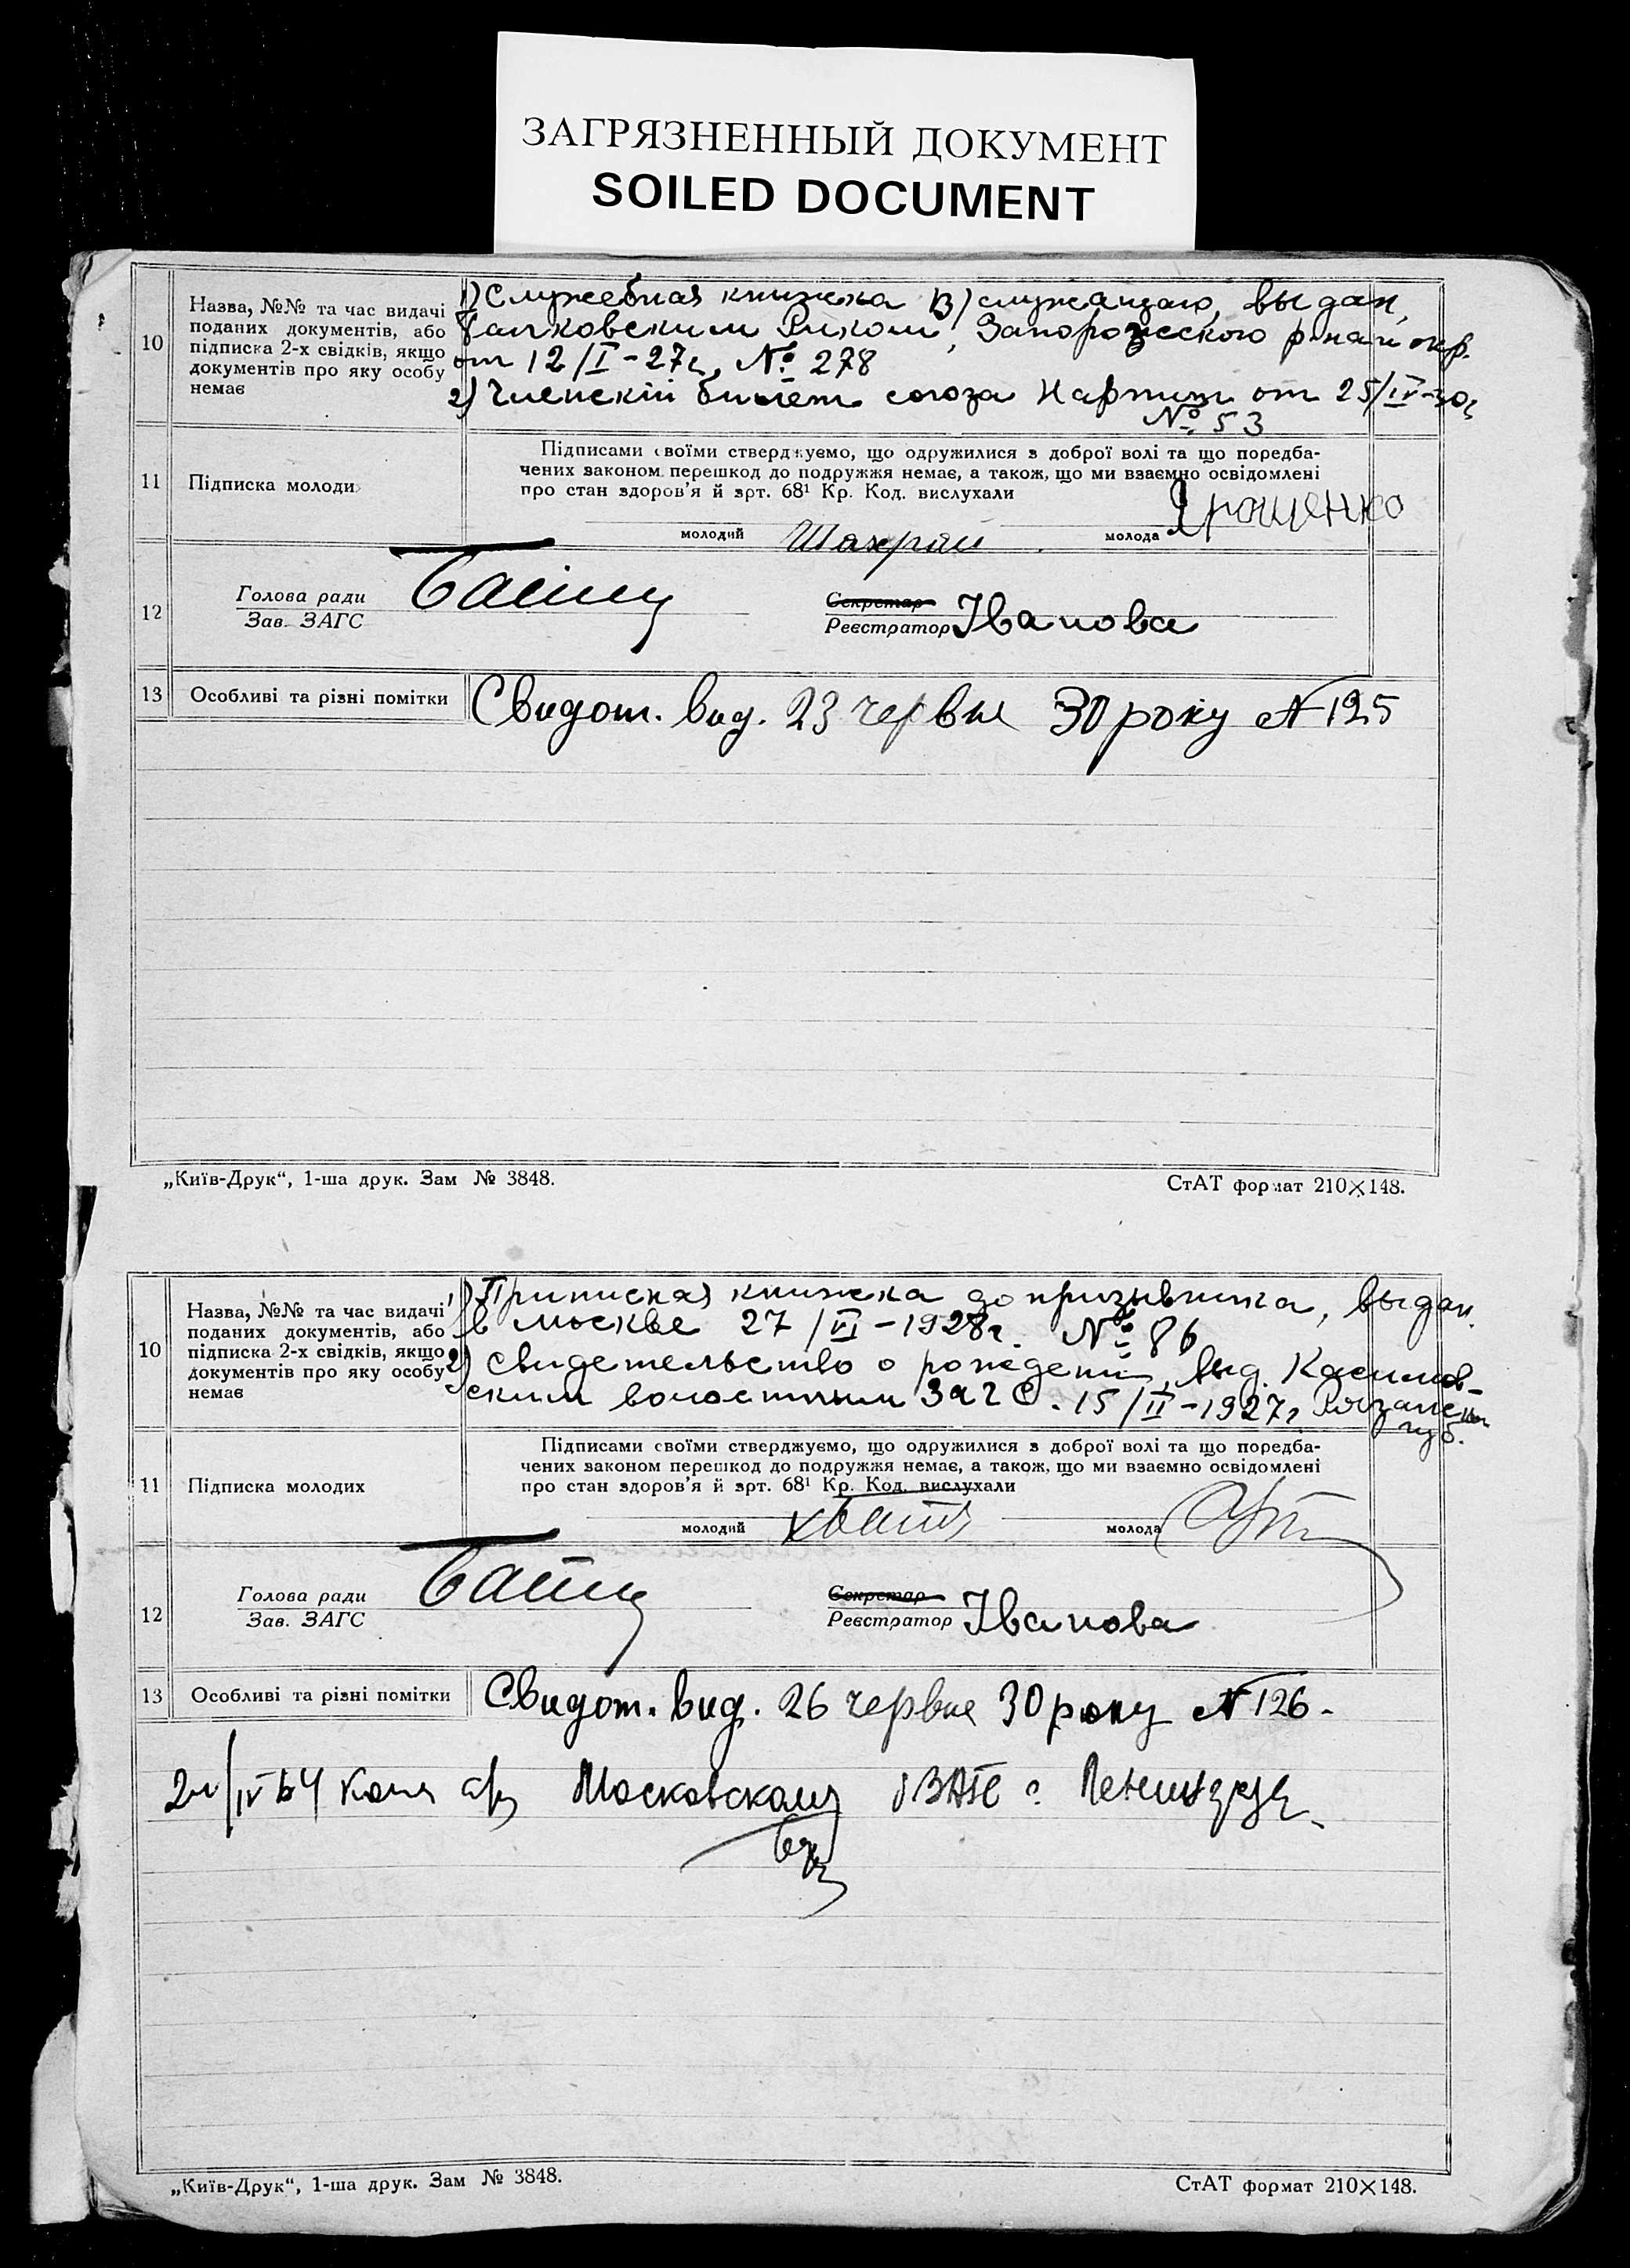 ЗАГРЯЗНЕННЫЙ ДОКУМЕНТ
SOILED DOCUMENT
10
Назва, №№ та час видачі
поданих документів, або
підписка 2-х свідків, якщо
документів про яку особу
немає
1) Служебная книжка В/служащаго, выдан,
Риком, Запорожеского р-на и окр.
от 12/I-27г, № 278
2) Членскій билет союза Нарпит от 25/IV-30г
№ 53
11
Підписка молоди
Підписами своїми стверджуємо, що одружилися з доброї волі та що поредба-
чених законом перешкод до подружжя немає, а також, що ми взаємно освідомлені
про стан здоров'я й арт. 68¹ Кр. Код. вислухали
молодий Шахрай молода Ярошенко
12
Голова ради
Зав. ЗАГС
Секретар
Реєстратор Іванова
13
Особливі та різні помітки
Свидот. вид. 23 червня 30 року № 125
„Київ-Друк“, 1-ша друк. Зам № 3848.
СтАТ формат 210×148.
10
Назва, №№ та час видачі
поданих документів, або
підписка 2-х свідків, якщо
документів про яку особу
немає
1) Приписная книжка допризывника, выдан.
в Москве 27/VI-1928г. № 86
2) Свидетельство о рождении, выд. Касимов-
ским волостным Загс. 15/II-1927г Рязанск
губ.
11
Підписка молодих
Підписами своїми стверджуємо, що одружилися з доброї волі та що поредба-
чених законом перешкод до подружжя немає, а також, що ми взаємно освідомлені
про стан здоров'я й арт. 68¹ Кр. Код. вислухали
молодий молода
12
Голова ради
Зав. ЗАГС
Секретар
Реєстратор Іванова
13
Особливі та різні помітки
Свидот. вид. 26 червня 30 року № 126.
Московскому г. Ленинграда
„Київ-Друк“, 1-ша друк. Зам № 3848.
СтАТ формат 210×148.